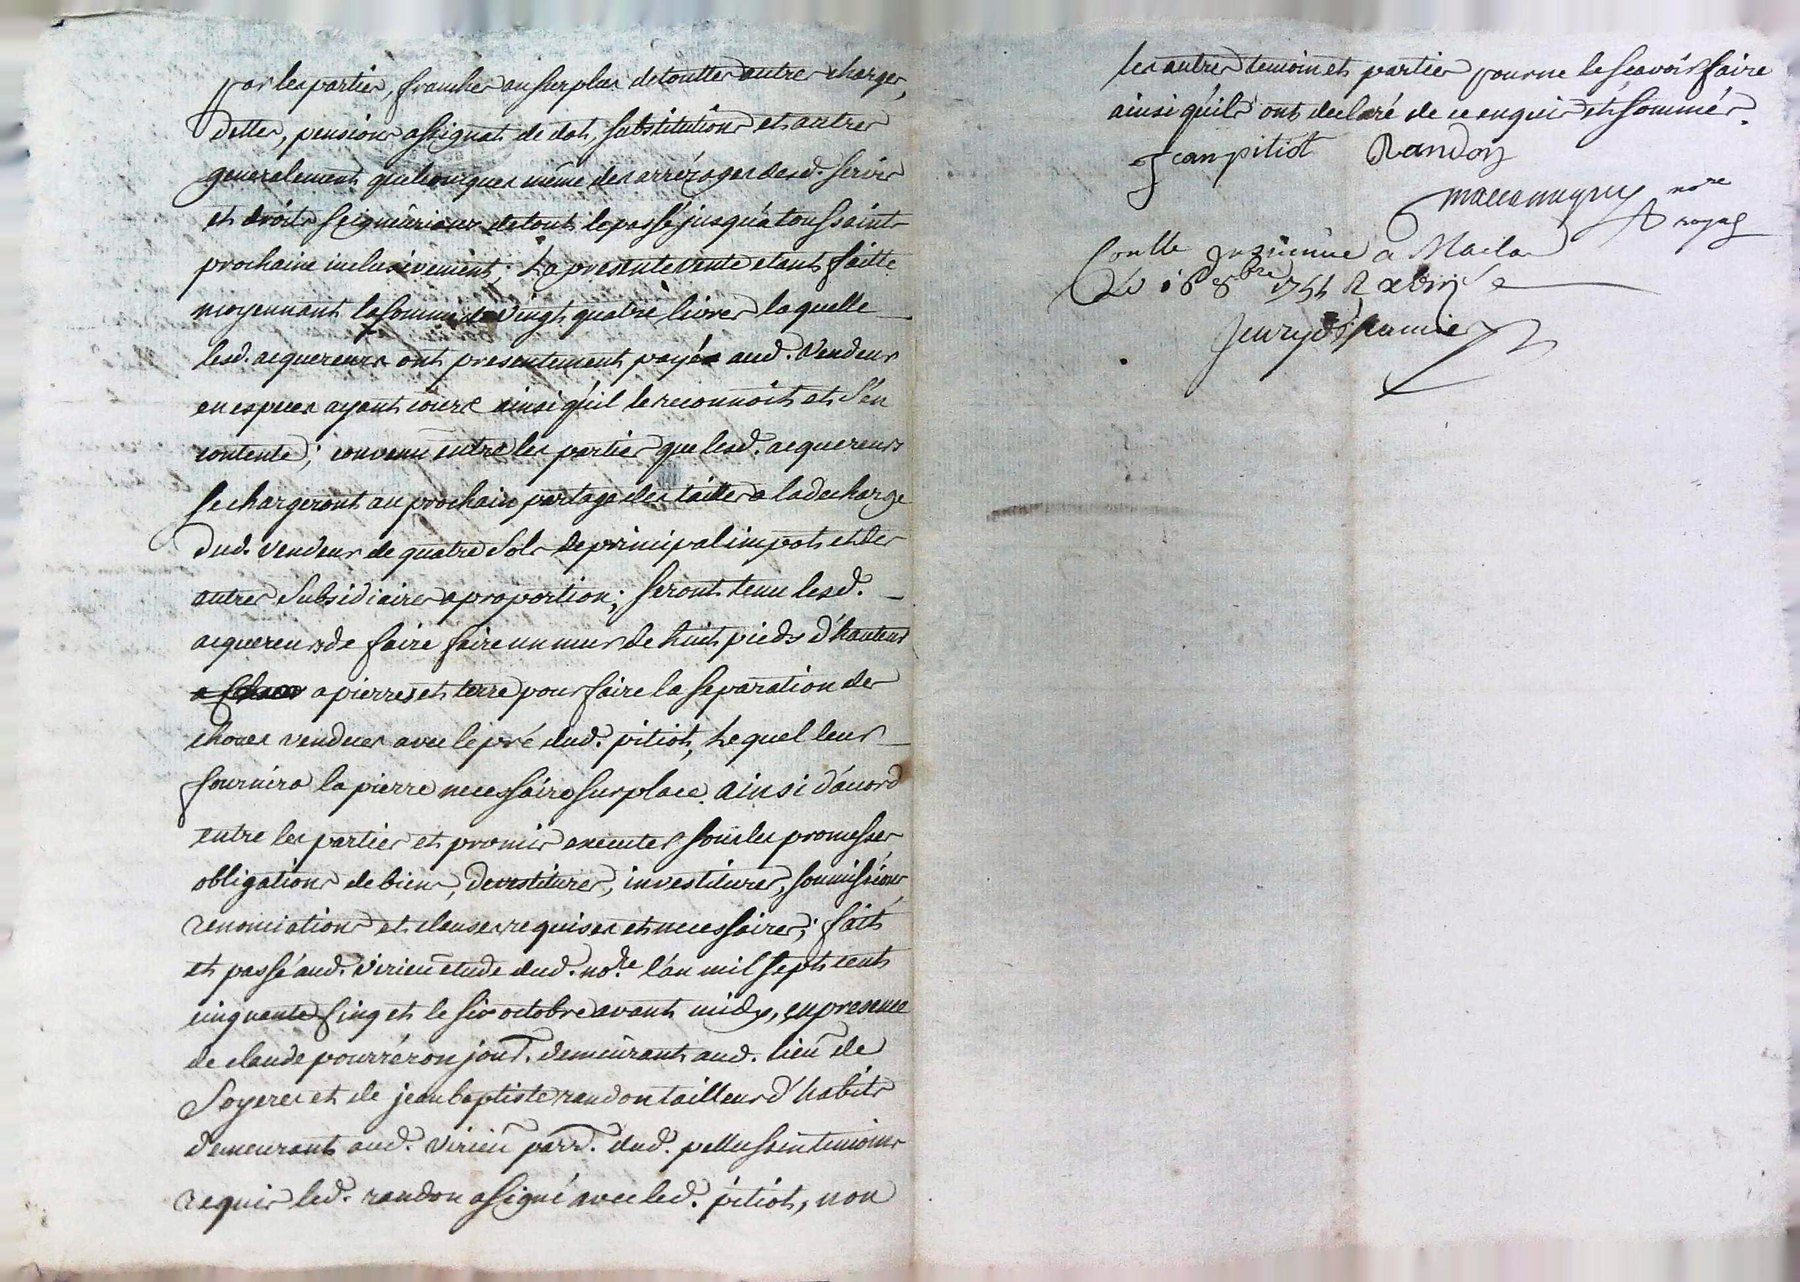 par les parties, franches au surplus de touttes autres charges,
dettes, pensions assignat de dot, substitutions et autres
generalement quelconques même des arrérages desd. servis
et droits seigneuriaux de tout le passé jusqu'a toussaints
prochaine inclusivement; La presente vente etant faitte
moyennant la somme de vingt quatre livres laquelle
lesd. acquereurs ont presentement payée aud. vendeur
en especes ayant cours ainsi qu'il le reconnoit et s'en
contente; convenu entre les parties que lesd. acquereurs
se chargeront au prochain partage des tailles a la decharge
dud. vendeur de quatre sols de principal impot et des
autres subsidiaires a proportion; seront tenu lesd.
acquereurs de faire faire un mur de huit pieds d'hauteur
a pierres et terre pour faire la separation des
choses vendues avec le pré dud. pitiot, Lequel leur
fournira la pierre necessaire sur place. ainsi d'acord
entre les parties et promis executer sous les promesses
obligations de biens, devestitures, investitures, soumissions,
renonciations et clauses requises et necessaires; fait
et passé aud. virieu etude dud. nore. l'an mil sept cent
cinquante cinq et le six octobre avant midy, en presence
de claude pourréron jour. demeurant aud. lieu de
Soyeres et de jean baptiste randon tailleur d'habits
demeurant aud. virieu parr. dud. pellussin temoins
requis led. randon a signé avec led. pitiot, non
les autres temoin et parties pour ne le scavoir faire
ainsi qu'ils ont declaré de ce enquis et sommés.
Jean pitiot Randon
nore
royal
Conllé a Macla
Le 16 8bre 1755 R